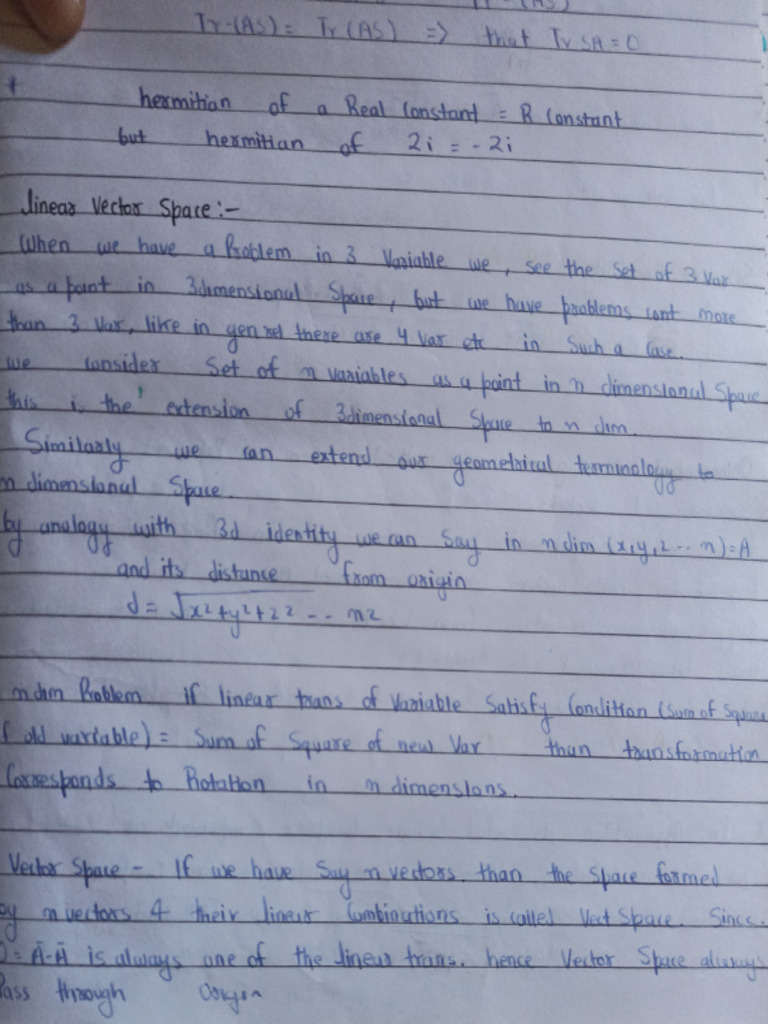 Tr-(AS) = Tr (AS) => that Tr SA = 0
hermitian of a Real Constant = R Constant
but hermitian of 2i = -2i
linear Vector Space:-
When we have a Problem in 3 Variable we, see the set of 3 Var
as a point in 3dimensional Space, but we have problems cont more
than 3 Var, like in gen rel there are 4 var etc in Such a Case.
we consider Set of n variables as a point in n dimensional Space
this is the extension of 3dimensional Space to n dim.
Similarly we can extend our geometrical terminology to
n dimensional Space.
by analogy with 3d identity we can Say in n dim (x,y,z -- n) = A
and its distance from origin
d = √x²+y²+z² -- n2
n dim Problem if linear trans of Variable Satisfy Condition (sum of Square
f old variable) = Sum of Square of new Var than transformation
Corresponds to Rotation in n dimensions.
Vector Space - If we have Say n vectors. than the space formed
by n vectors & their linear Combinations is called Vect Space. Since.
= Ā-Ā is always one of the linear trans. hence Vector Space always
Pass through Origin